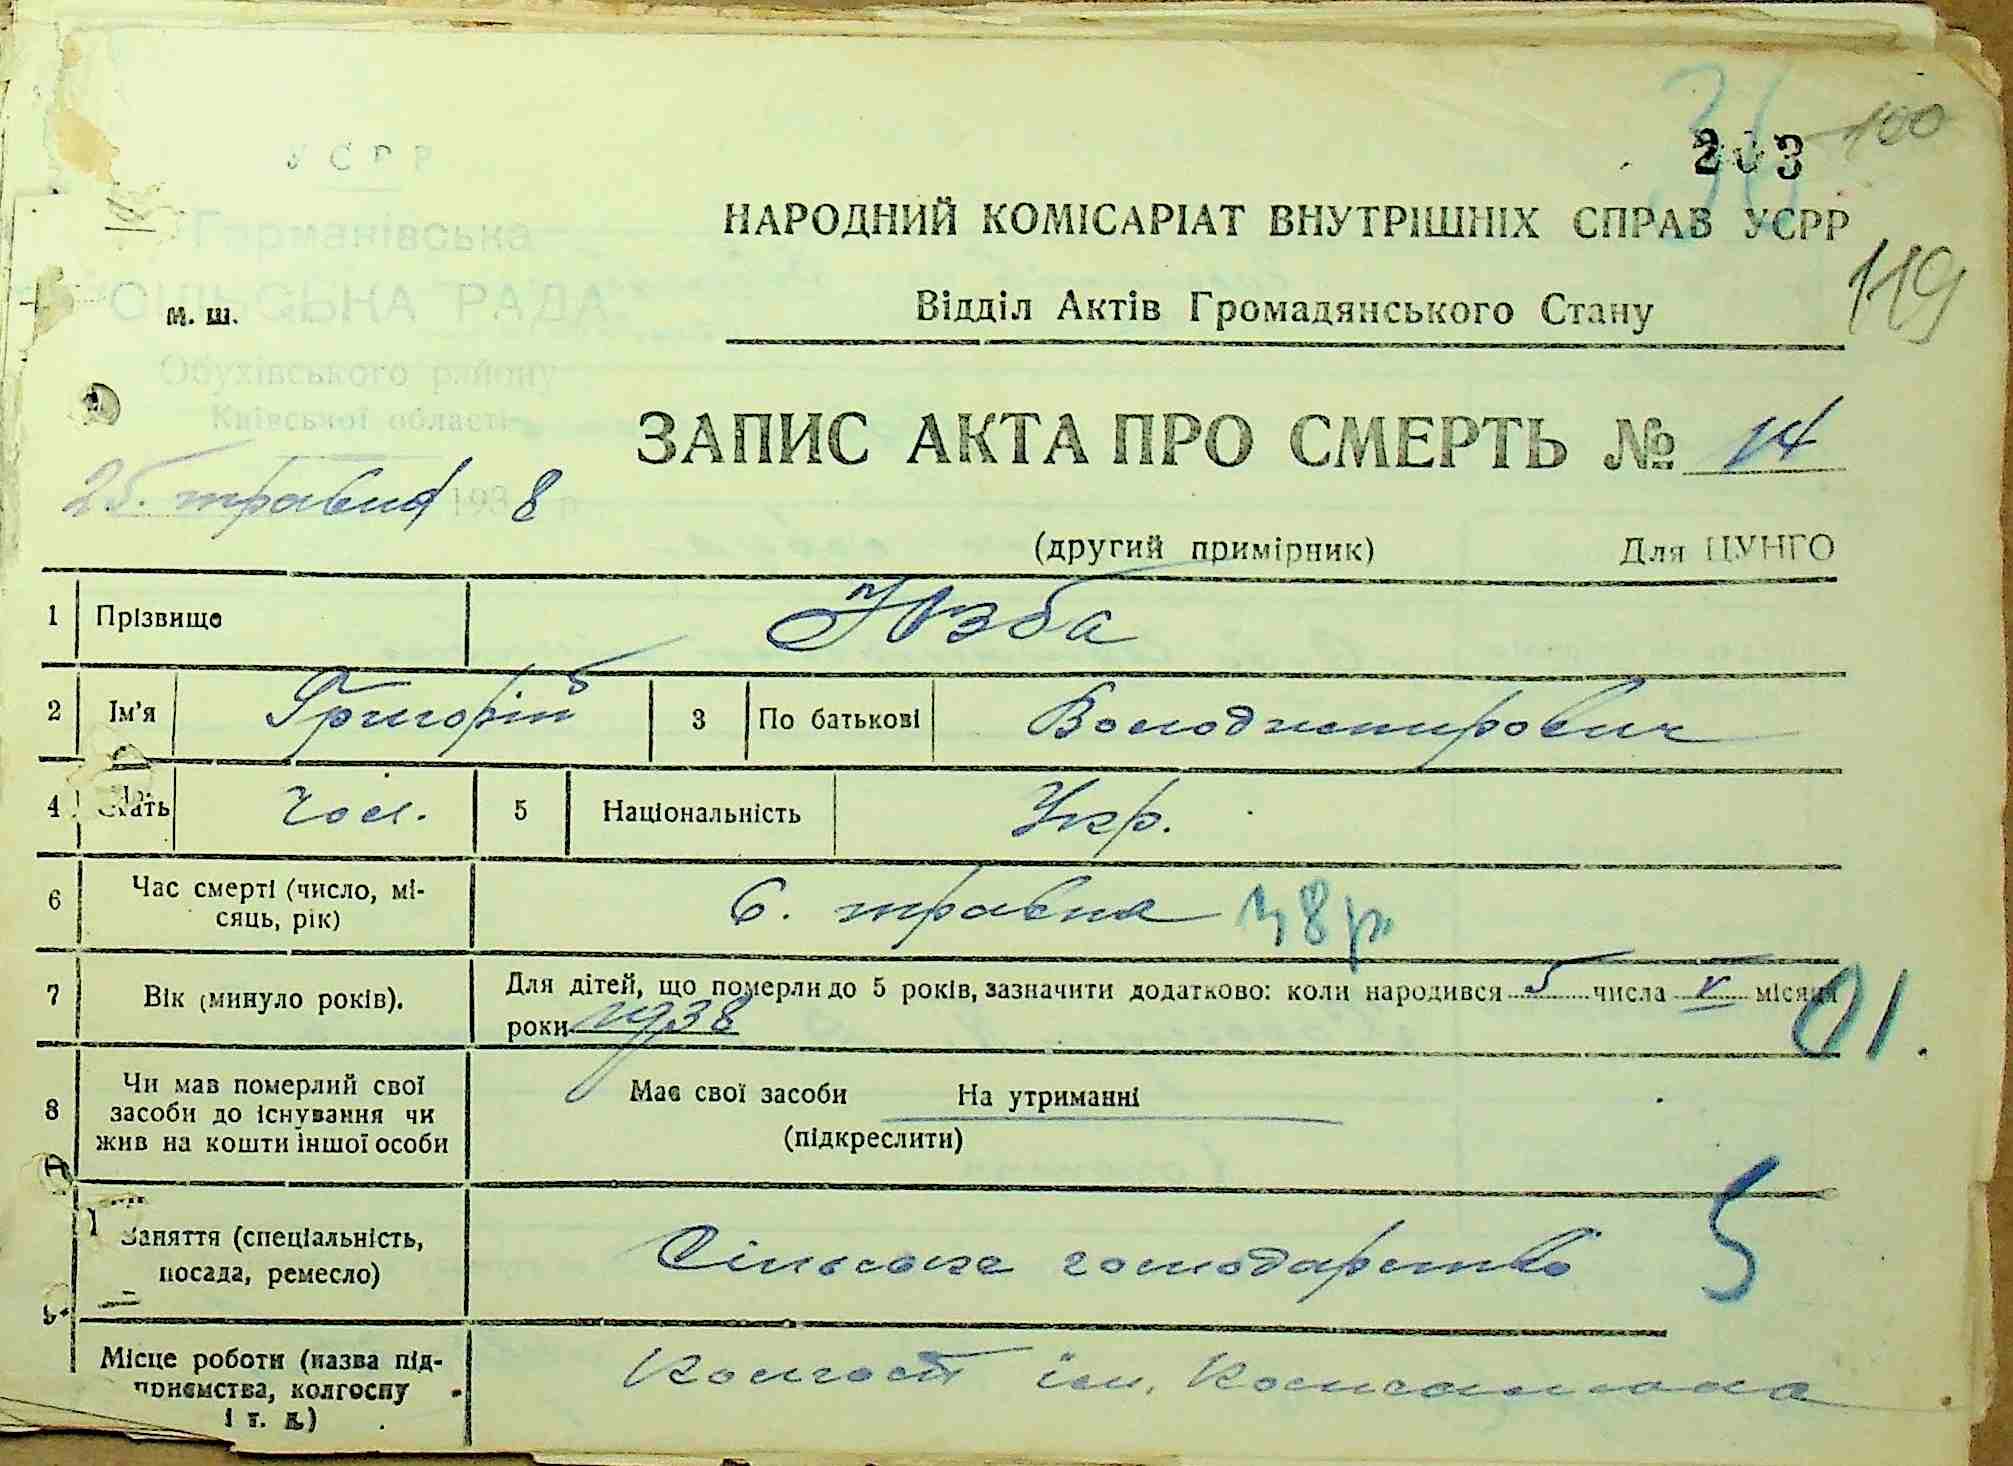 УСРР
Германівська
СІЛЬСЬКА РАДА
Обухівського району
Київської області
м. ш.
100
203
36
НАРОДНИЙ КОМІСАРІАТ ВНУТРІШНІХ СПРАВ УСРР
119
Відділ Актів Громадянського Стану
ЗАПИС АКТА ПРО СМЕРТЬ № 14
25. травня 1938 р
(другий примірник) Для ЦУНГО
1 Прізвище Юзба
2 Ім'я Григорій 3 По батькові Володимирович
4 Стать чол. 5 Національність Укр.
6 Час смерті (число, мі-
сяць, рік) 6. травня 38 р
7 Вік (минуло років). Для дітей, що померли до 5 років, зазначити додатково: коли народився 5 числа V місяця
роки 1938
01.
8 Чи мав померлий свої
засоби до існування чи
жив на кошти іншої особи
Має свої засоби На утриманні
(підкреслити)
Заняття (спеціальність,
посада, ремесло) Сільське господарство
5
Місце роботи (назва під-
приємства, колгоспу
і т. д.)
Колгосп ім. Комсомола